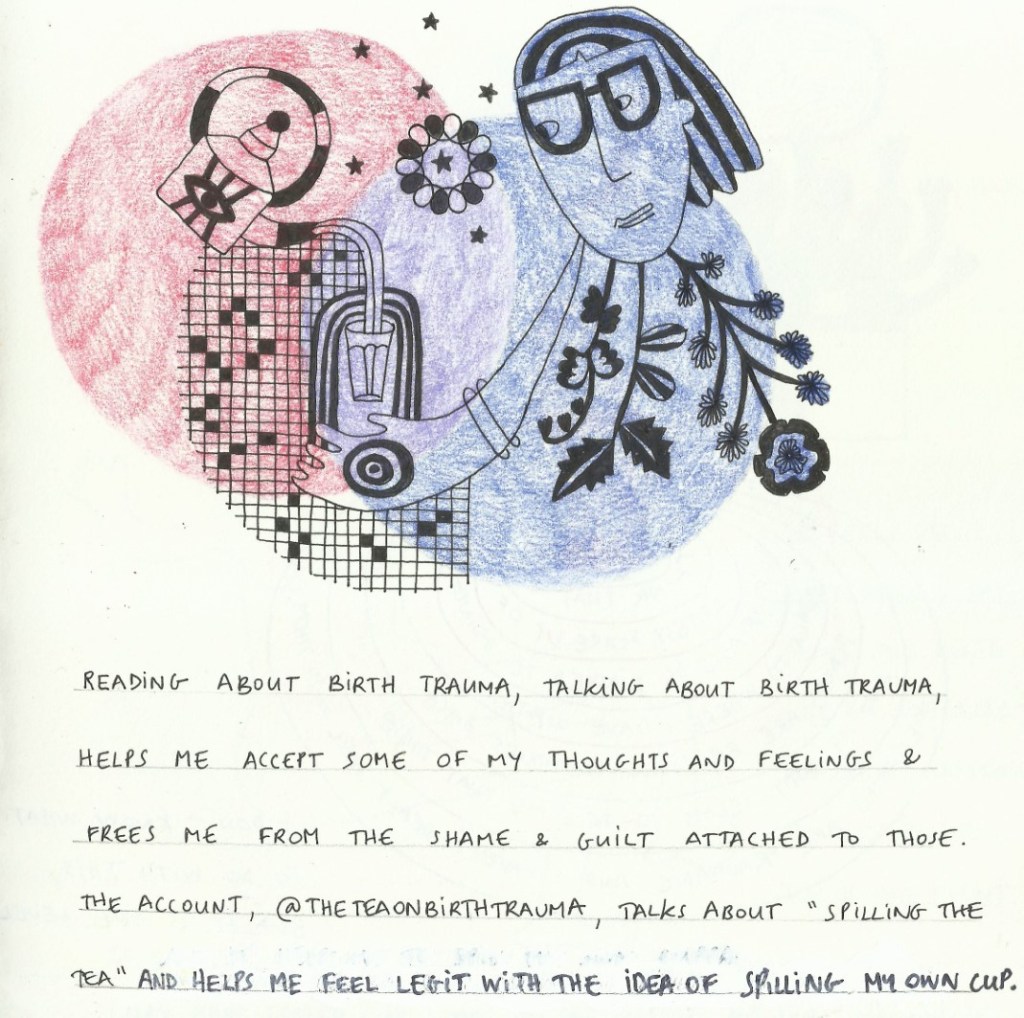 READING ABOUT BIRTH TRAUMA, TALKING ABOUT BIRTH TRAUMA,
HELPS ME ACCEPT SOME OF MY THOUGHTS AND FEELINGS &
FREES ME FROM THE SHAME & GUILT ATTACHED TO THOSE.
THE ACCOUNT, @THETEAONBIRTHTRAUMA, TALKS ABOUT "SPILLING THE
TEA" AND HELPS ME FEEL LEGIT WITH THE IDEA OF SPILLING MY OWN CUP.